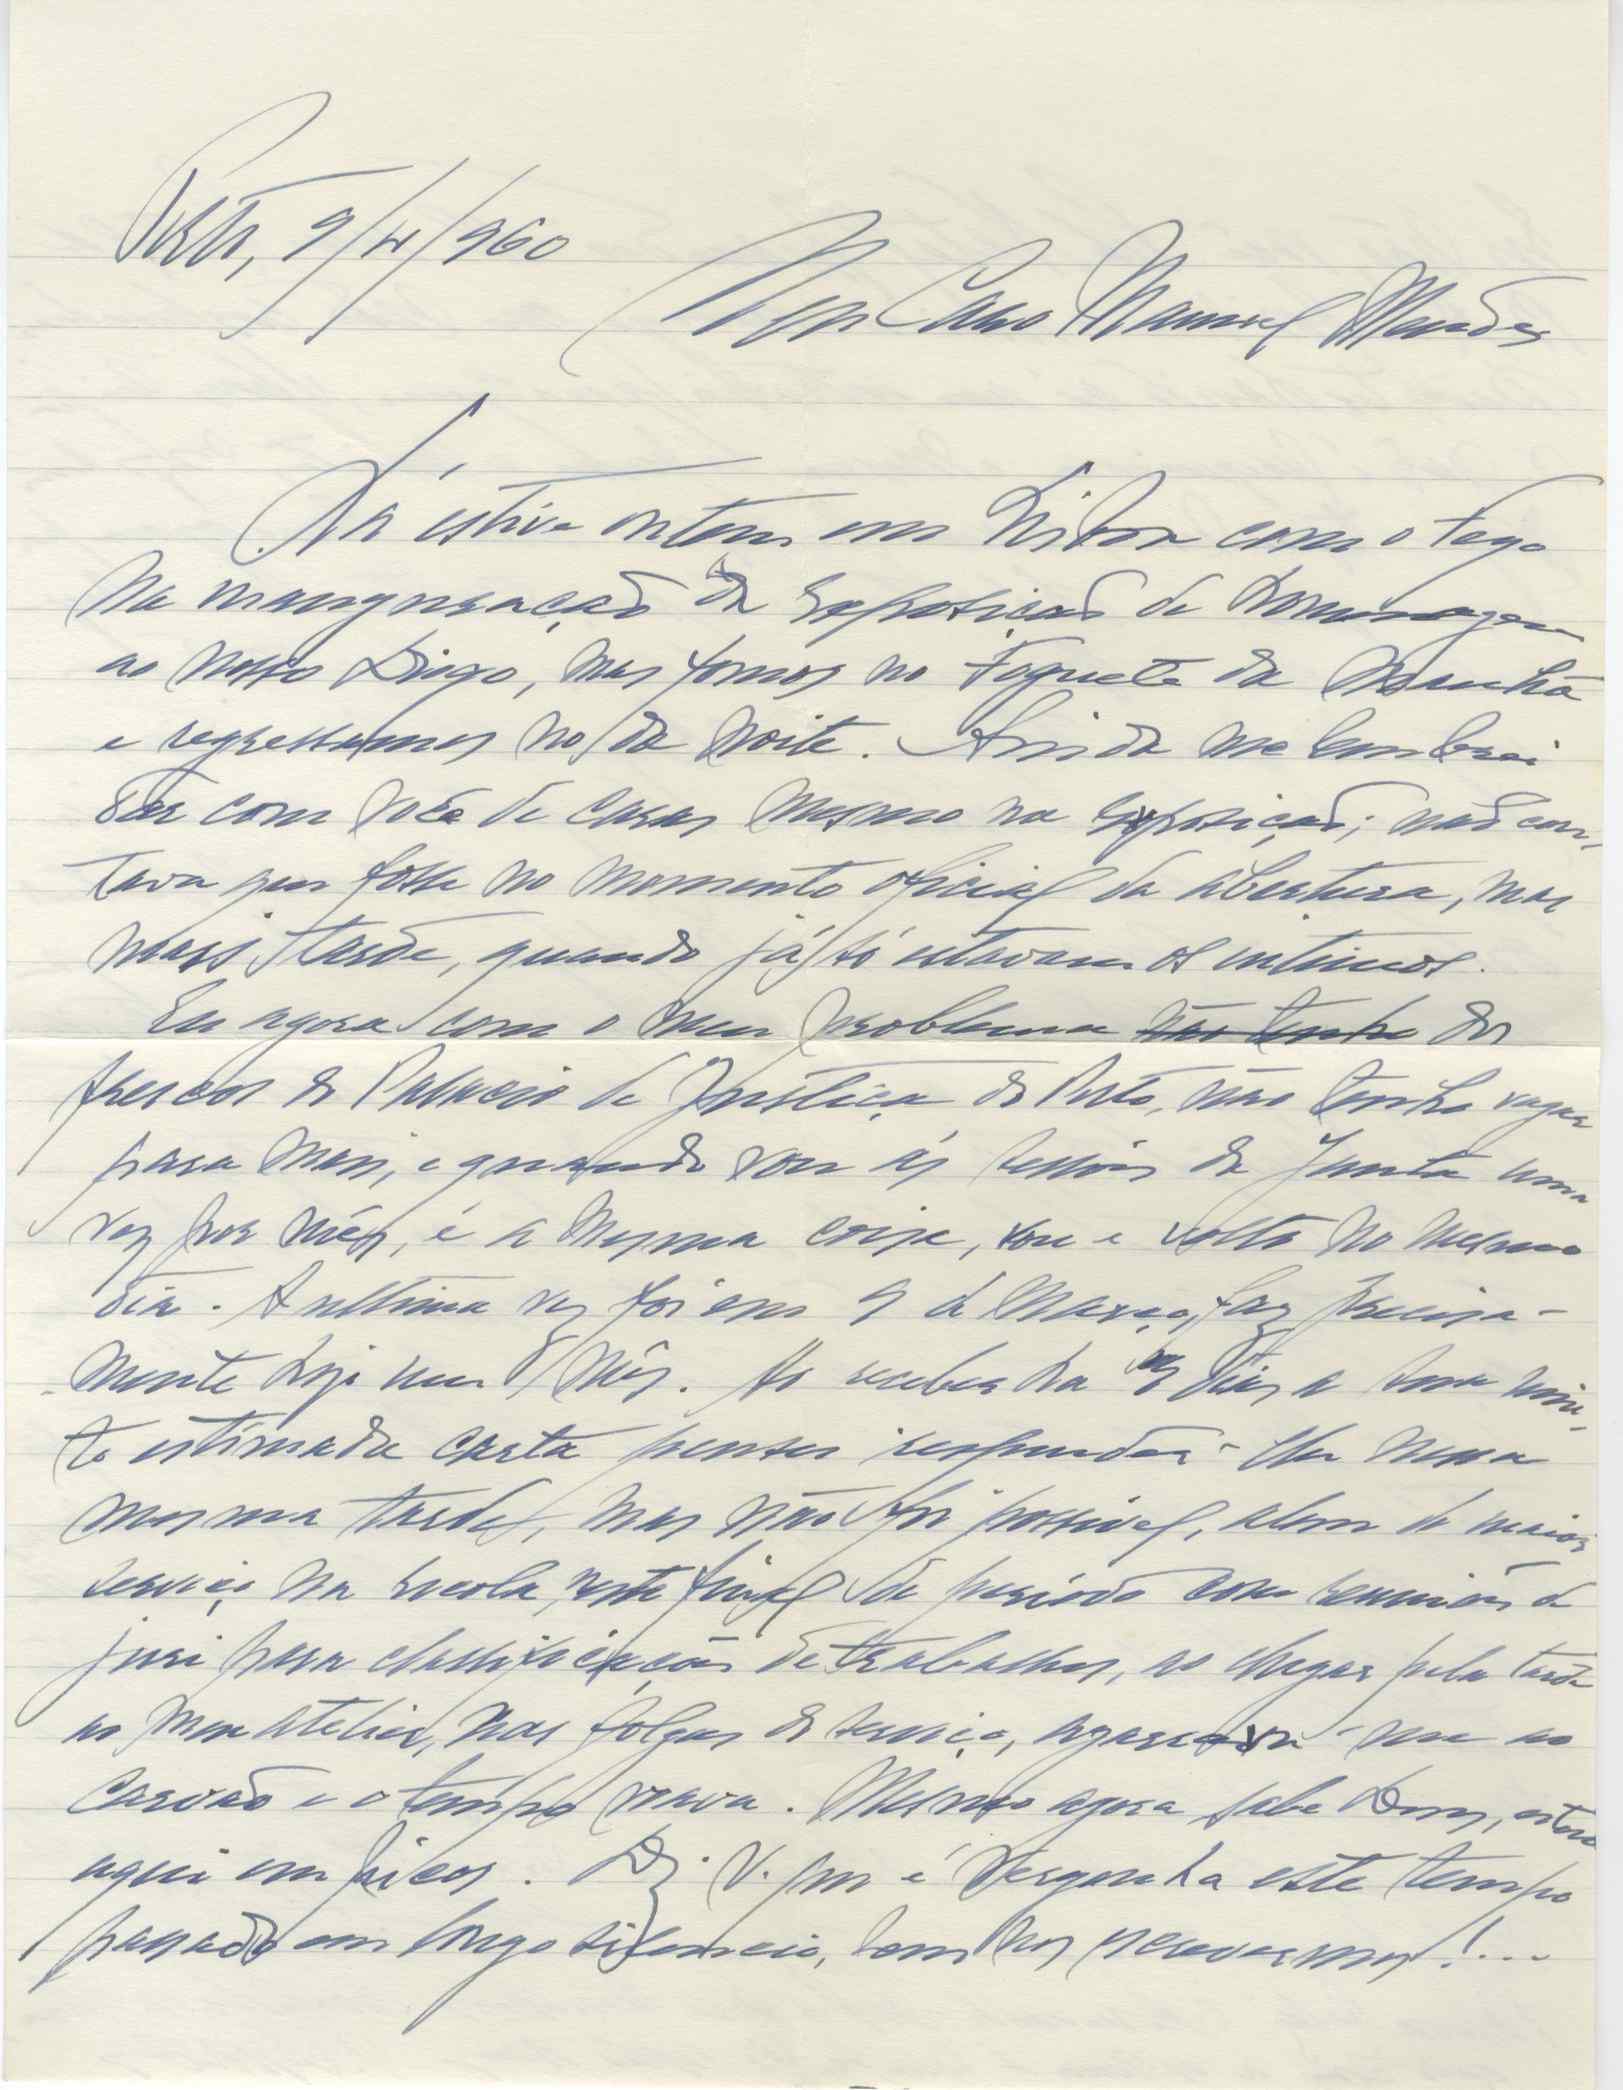 Porto, 9/4/960
Meu Caro Manuel Mendes
Já estive ontem em Lisboa como o Fogo
na inauguração da Exposição de homenagem
ao nosso Diogo, mas fomos no Foguete da manhã
e regressamos no da noite. Ainda me lembrei
dar com você de caras mesmo na Exposição; não con-
tava que fosse no momento oficial da abertura, mas
mais tarde, quando já só estavam os intimos.
Eu agora com o meu problema não tenho dos
frescos do Palacio de Justiça do Porto, não tenho vagar
para mais, e quando vou ás sessões da Junta uma
vez por mês, é a mesma coisa, vou e volto no mesmo
dia. A ultima vez foi em 9 de Março, faz precisa-
mente hoje um mês. Ao receber ha dias a sua mui-
to estimada carta pensei responder-lhe nessa
mesma tarde, mas não foi possivel, alem do maior
serviço na Escola, neste final de periodo com reuniões de
juri para classificações de trabalhos, ao chegar pela tarde
ao meu atelier, nas folgas do serviço, agarrava-me ao
carvão e o tempo voava. Mesmo agora sabe Deus, estou
aqui em picos. Diz V. que é vergonha este tempo
passado em longo silencio, sem nos escrevermos!...